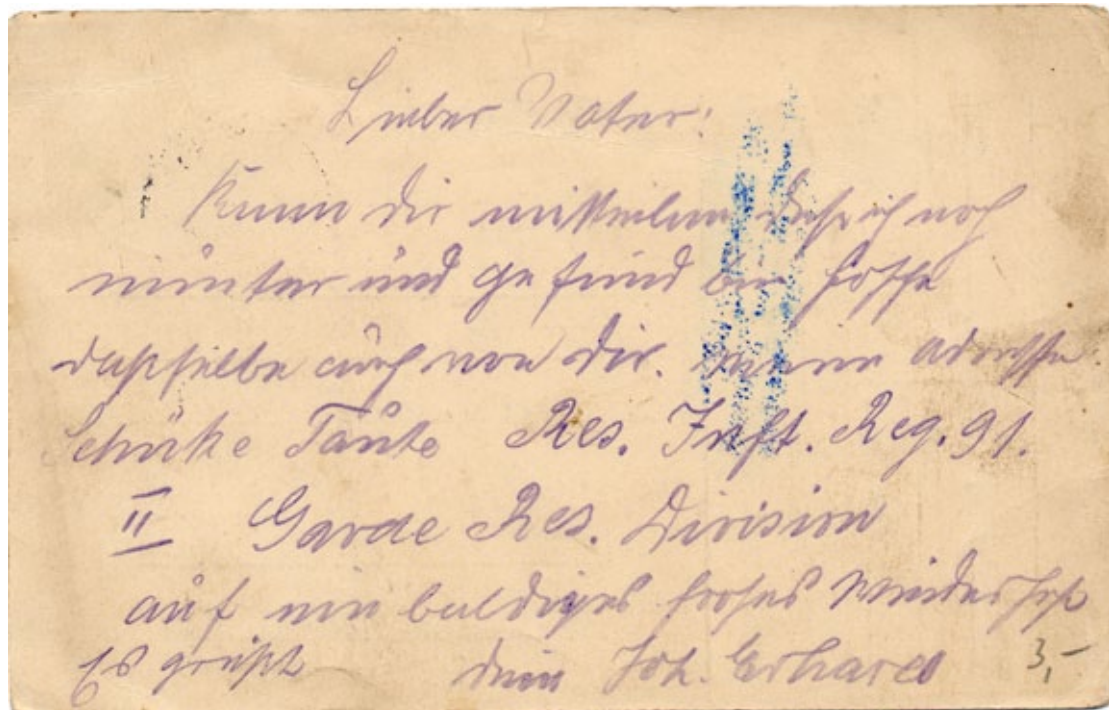 Lieber Vater!
Kann dir mitteilen daß ich noch
munter und gesund bin hoffe
dasselbe auch von dir. meine adresse
Res. Inft. Reg. 91.
II Garde Res. Division
auf ein baldiges frohes Wiedersehn
Es grüßt dein Joh. Erhard
3,-